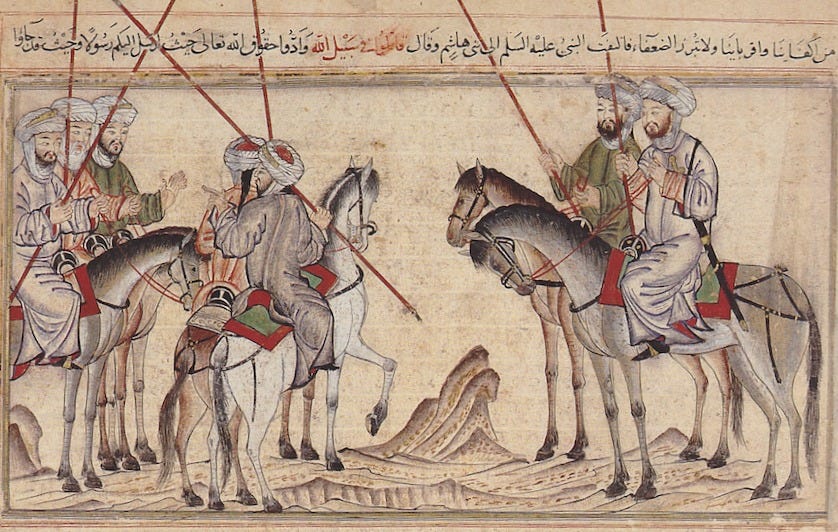 من كفاينا واقرباينا ولا نبرز الضعفاء فالتفت النبي عليه السلم الى بني هاشم وقال قاتلوا في سبيل الله وادوا حقوق الله تعالى حيث ارسل اليكم رسولا وحيث قد جاؤا